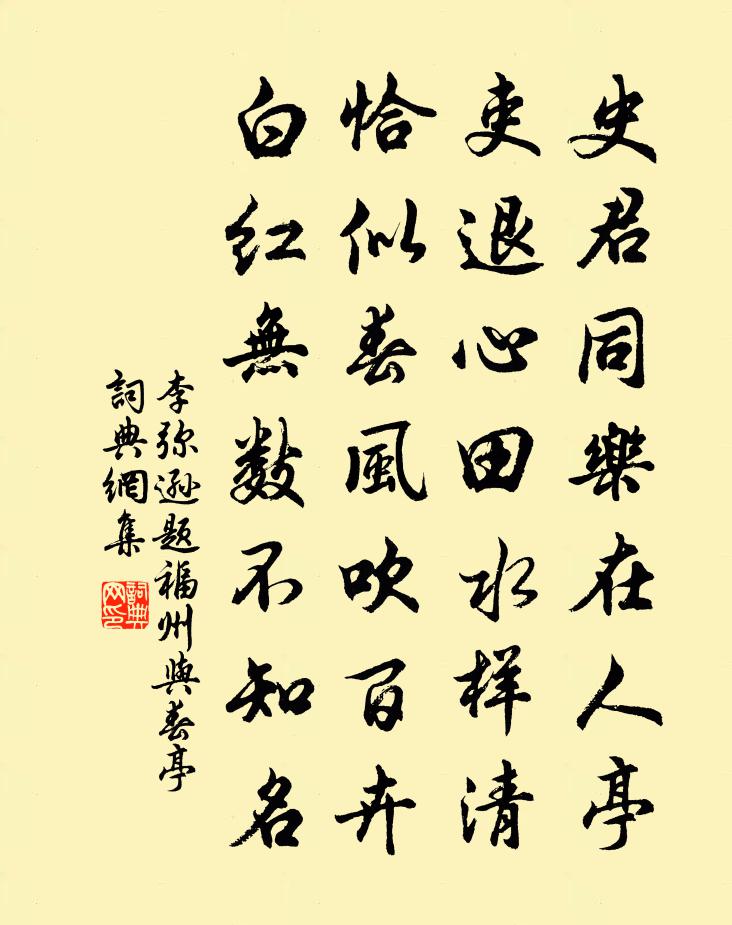 史君同樂在人亭
吏退心田水样清
恰似春風吹百卉
白红無数不知名
李弥遜题福州與春亭
詞典網集
詞典网印